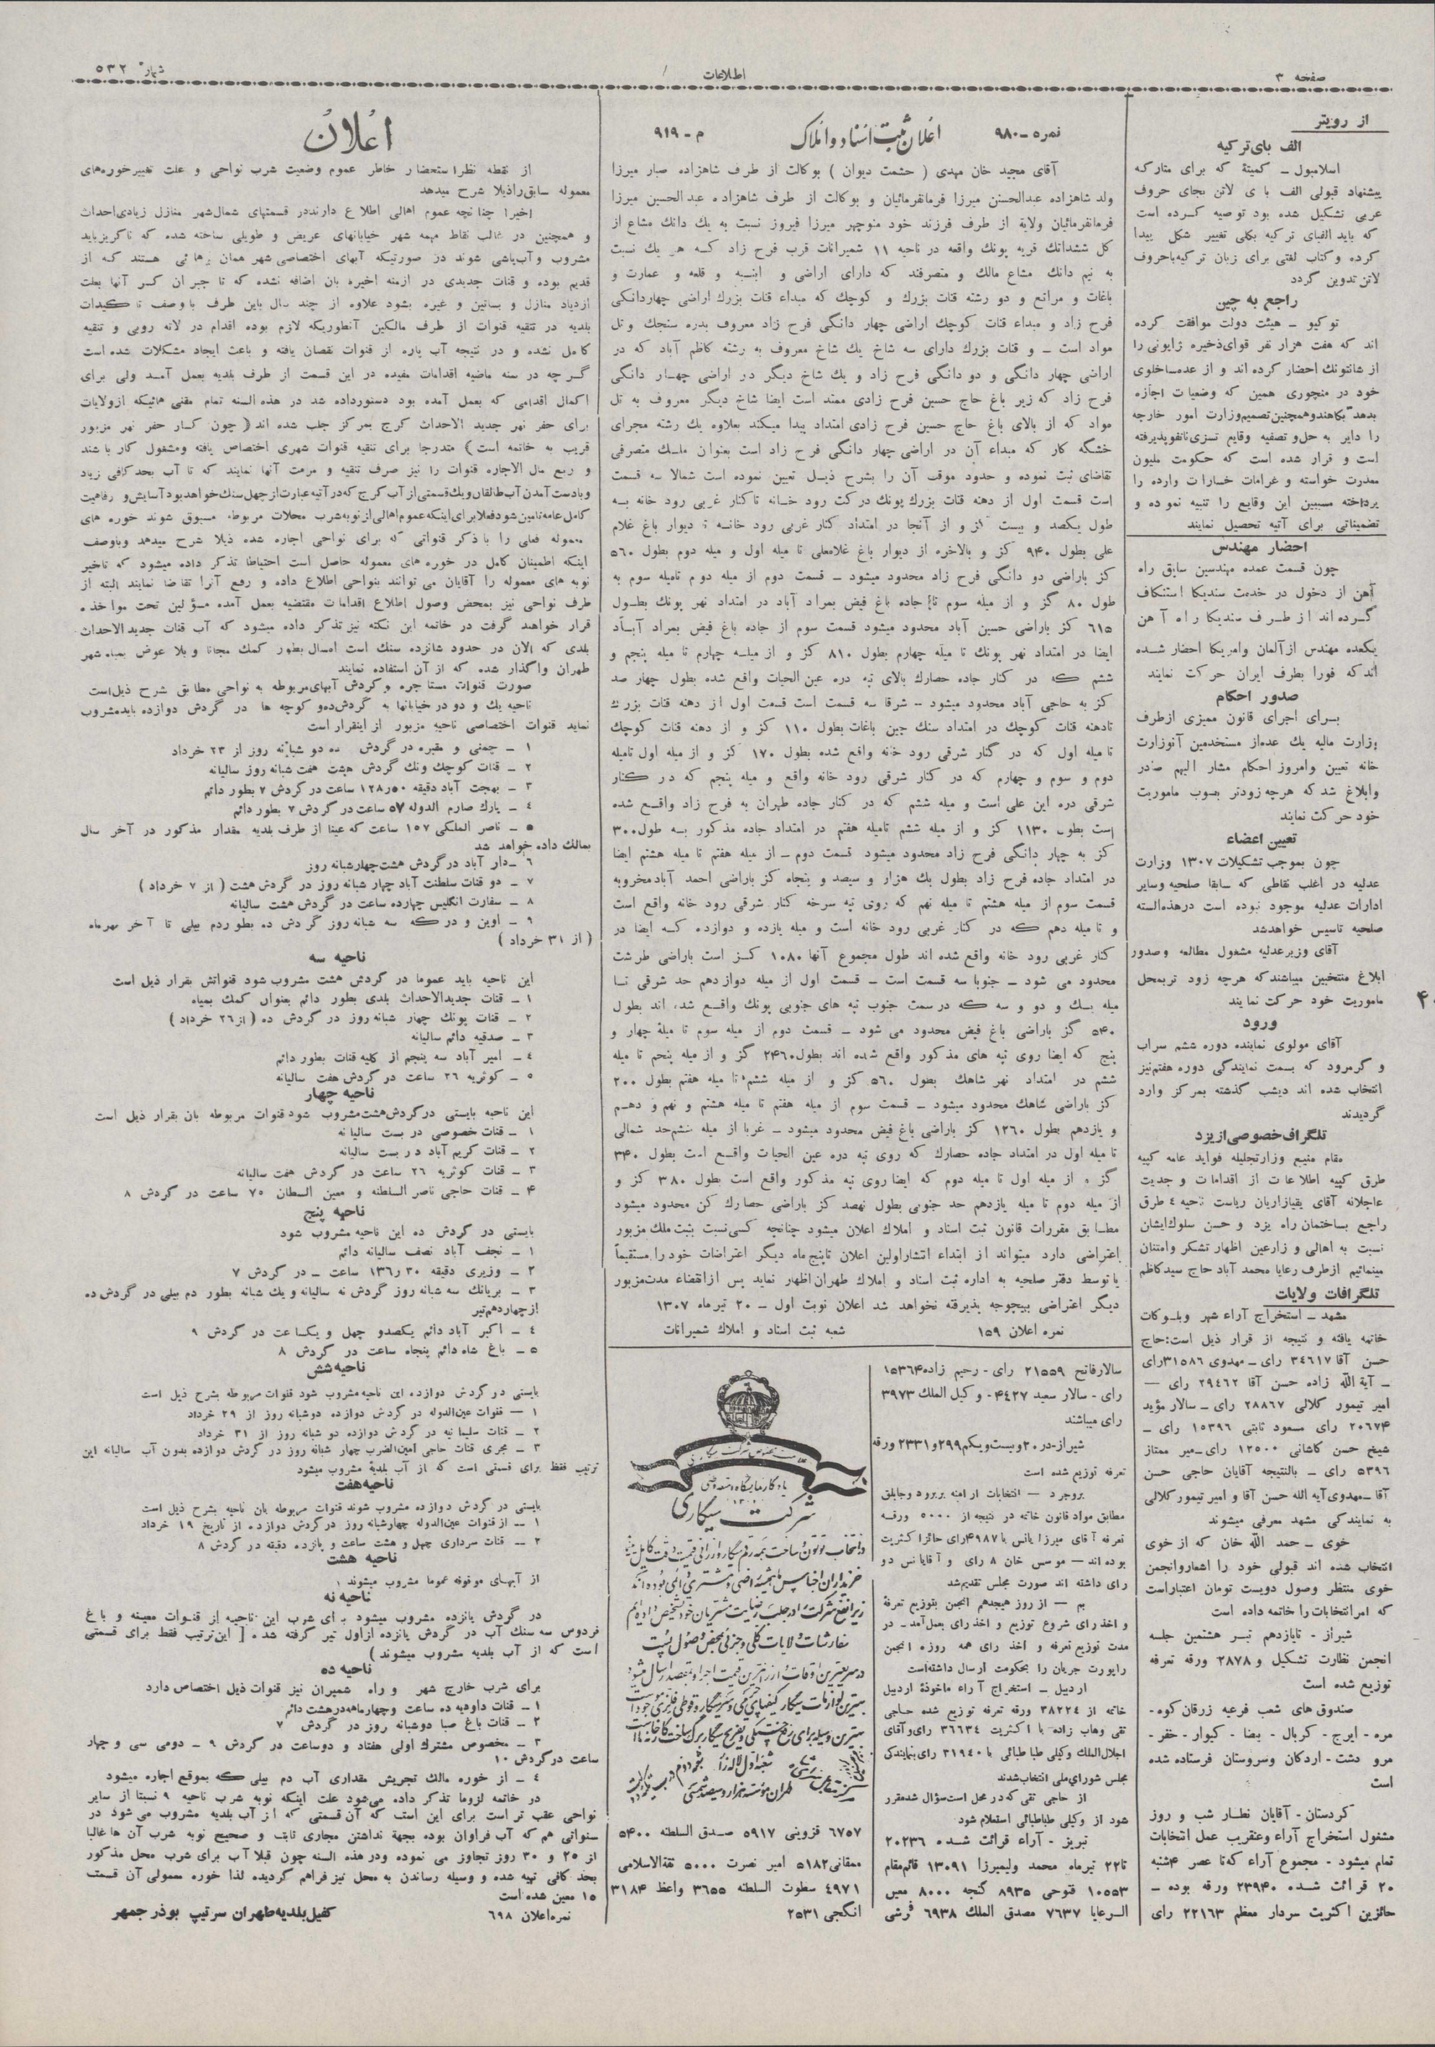 صفحه ۳
اطلاعات
شماره ۵۳۲
از رویتر
الف بای ترکیه
اسلامبول ـ کمیتهٔ که برای متارکه
پیشنهاد قبولی الف با ی لاتن بجای حروف
عربی تشکیل شده بود توصیه کرده است
که باید الفبای ترکیه بکلی تغییر شکل پیدا
کرده وکتاب لغتی برای زبان ترکیه باحروف
لاتن تدوین گردد
راجع به چین
توکیو ـ هیئت دولت موافقت کرده
اند که هفت هزار نفر قوای ذخیره ژاپونی را
از شانتونك احضار کرده اند و از عده
خود در منچوری همین که وضعیات اجازه
بدهد بکاهند وهمچنین تصمیم وزارت امور خارجه
را دایر به حل و تصفیه وقایع
است و قرار شده است که حکومت ملیون
معذرت خواسته و غرامات خسارات وارده را
پرداخته مسببین این وقایع را تنبیه نموده و
تضمیناتی برای آتیه تحصیل نمایند
احضار مهندس
چون قسمت عمده مهندسین سابق راه
آهن از دخول در خدمت سندیکا استنکاف
کرده اند از طرف سندیکا راه آهن
یکعده مهندس از آلمان وامریکا احضار شده
اند که فورا بطرف ایران حرکت نمایند
صدور احکام
برای اجرای قانون ممیزی از طرف
وزارت مالیه یك عده از مستخدمین آنوزارت
خانه تعیین وامروز احکام مشار الیهم صادر
وابلاغ شد که هرچه زودتر بصوب ماموریت
خود حرکت نمایند
تعیین اعضاء
چون بموجب تشکیلات ۱۳۰۷ وزارت
عدلیه در اغلب نقاطی که سابقا صلحیه وسایر
ادارات عدلیه موجود نبوده است درهذه السنه
صلحیه تاسیس خواهد شد
آقای وزیر عدلیه مشغول مطالعه وصدور
ابلاغ منتخبین میباشند که هرچه زود تر بمحل
ماموریت خود حرکت نمایند
ورود
آقای مولوی نماینده دوره ششم سراب
و گرمرود که بسمت نمایندگی دوره هفتم نیز
انتخاب شده اند دیشب گذشته بمرکز وارد
گردیدند
تلگراف خصوصی از یزد
مقام منیع وزارت جلیله فواید عامه کپیه
طرق کپیه اطلاعات از اقدامات و جدیت
عاجلانه آقای یقیازاریان ریاست ناحیه ٤ طرق
راجع بساختمان راه یزد و حسن سلوك ایشان
نسبت به اهالی و زارعین اظهار تشکر وامتنان
مینمائیم از طرف رعایا محمد آباد حاج سید کاظم
تلگرافات ولایات
مشهد ـ استخراج آراء شهر وبلوکات
خاتمه یافته و نتیجه از قرار ذیل است: حاج
حسن آقا ۳٤۶۱۷ رای ـ مهدوی ۳۱۵۸۶ رای
ـ آیة الله زاده حسن آقا ۲۹٤۶۲ رای ـ
امیر تیمور کلالی ۲۸۸۶۷ رای ـ سالار مؤید
۲۰۶۷٤ رای مسعود ثابتی ۱۵۳۹۶ رای ـ
شیخ حسن کاشانی ۱۲۵۰۰ رای ـ میر ممتاز
۵۳۹۶ رای ـ بالنتیجه آقایان حاجی حسن
آقا ـ مهدوی آیه الله حسن آقا و امیر تیمور کلالی
به نمایندکی مشهد معرفی میشوند
خوی ـ حمد الله خان که از خوی
انتخاب شده اند قبولی خود را اشعار وانجمن
خوی منتظر وصول دویست تومان اعتبار است
که امر انتخابات را خاتمه داده است
شیراز ـ تایازدهم تیر هشتمین جلسه
انجمن نظارت تشکیل و ۲۸۷۸ ورقه تعرفه
توزیع شده است
صندوق های شعب فرعیه زرقان کوه ـ
مره ـ ایرج ـ کربال ـ بیضا ـ کیوار ـ خفر ـ
مرو دشت ـ اردکان وسروستان فرستاده شده
است
کردستان ـ آقایان نظار شب و روز
مشغول استخراج آراء وعنقریب عمل انتخابات
تمام میشود ـ مجموع آراء که تا عصر ۴شنبه
۲۰ قرائت شده ۲۳۹٤۰ ورقه بوده ـ
حائزین اکثریت سردار معظم ۲۲۱۶۳ رای
نمره ـ ۹۸۰
اعلان ثبت اسناد و املاک
م ـ ۹۱۹
آقای مجید خان مهدی ( حشمت دیوان ) بوکالت از طرف شاهزاده صبار میرزا
ولد شاهزاده عبدالحسین میرزا فرمانفرمائیان و بوکالت از طرف شاهزاده عبدالحسین میرزا
فرمانفرمائیان ولایة از طرف فرزند خود منوچهر میرزا فیروز نسبت به یك دانك مشاع از
کل ششدانك قریه پونك واقعه در ناحیه ۱۱ شمیرانات قرب فرح زاد که هر یك نسبت
به نیم دانك مشاع مالك و متصرفند که دارای اراضی و ابنیه و قلعه و عمارت و
باغات و مراتع و دو رشته قنات بزرك و کوچك که مبداء قنات بزرك اراضی چهاردانگی
فرح زاد و مبداء قنات کوچك اراضی چهار دانگی فرح زاد معروف بدره سنجك وتل
مواد است ـ و قنات بزرك دارای سه شاخ یك شاخ معروف به رشته کاظم آباد که در
اراضی چهار دانگی و دو دانگی فرح زاد و یك شاخ دیگر در اراضی چهار دانگی
فرح زاد که زیر باغ حاج حسین فرح زادی ممتد است ایضا شاخ دیگر معروف به تل
مواد که از بالای باغ حاج حسین فرح زادی امتداد پیدا میکند بعلاوه یك رشته مجرای
خشگه کار که مبداء آن در اراضی چهار دانگی فرح زاد است بعنوان ملك متصرفی
تقاضای ثبت نموده و حدود موقت آن را بشرح ذیل تعیین نموده است شمالا سه قسمت
است قسمت اول از دهنه قنات بزرك پونك درکت رود خانه تاکنار غربی رود خانه به
طول یکصد و بیست گز و از آنجا در امتداد کنار غربی رود خانه تا دیوار باغ غلام
علی بطول ۹٤۰ گز و بالاخره از دیوار باغ غلامعلی تا میله اول و میله دوم بطول ۵۶۰
گز باراضی دو دانگی فرح زاد محدود میشود ـ قسمت دوم از میله دوم تامیله سوم به
طول ۸۰ گز و از میله سوم تا جاده باغ فیض بمراد آباد در امتداد نهر پونك بطول
۶۱۵ گز باراضی حسین آباد محدود میشود قسمت سوم از جاده باغ فیض بمراد آباد
ایضا در امتداد نهر پونك تا میله چهارم بطول ۸۱۰ گز و از میله چهارم تا میله پنجم و
ششم که در کنار جاده حصارك بالای تپه دره عین الحیات واقع شده بطول چهار صد
گز به حاجی آباد محدود میشود ـ شرقا سه قسمت است قسمت اول از دهنه قنات بزرك
تادهنه قنات کوچك در امتداد سنك چین باغات بطول ۱۱۰ گز و از دهنه قنات کوچك
تا میله اول که در کنار شرقی رود خانه واقع شده بطول ۱۷۰ گز و از میله اول تامیله
دوم و سوم و چهارم که در کنار شرقی رود خانه واقع و میله پنجم که در کنار
شرقی دره ابن علی است و میله ششم که در کنار جاده طهران به فرح زاد واقع شده
است بطول ۱۱۳۰ گز و از میله ششم تامیله هفتم در امتداد جاده مذکور به طول ۳۰۰
گز به چهار دانگی فرح زاد محدود میشود قسمت دوم ـ از میله هفتم تا میله هشتم ایضا
در امتداد جاده فرح زاد بطول یك هزار و سیصد و پنجاه گز باراضی احمد آباد مخروبه
قسمت سوم از میله هشتم تا میله نهم که روی تپه سرخه کنار شرقی رود خانه واقع است
و تا میله دهم که در کنار غربی رود خانه است و میله یازده و دوازده که ایضا در
کنار غربی رود خانه واقع شده اند طول مجموع آنها ۱۰۸۰ گز است باراضی طرشت
محدود می شود ـ جنوبا سه قسمت است ـ قسمت اول از میله دوازدهم حد شرقی تا
میله یك و دو و سه که درسمت جنوب تپه های جنوبی پونك واقع شده اند بطول
۵٤۰ گز باراضی باغ فیض محدود می شود ـ قسمت دوم از میله سوم تا میله چهار و
پنج که ایضا روی تپه های مذکور واقع شده اند بطول ۲٤۶۰ گز و از میله پنجم تا میله
ششم در امتداد نهر شاهك بطول ۵۶۰ گز و از میله ششم تا میله هفتم بطول ۲۰۰
گز باراضی شاهك محدود میشود ـ قسمت سوم از میله هفتم تا میله هشتم و نهم و دهم
و یازدهم بطول ۱۲۶۰ گز باراضی باغ فیض محدود میشود ـ غربا از میله ششم حد شمالی
تا میله اول در امتداد جاده حصارك که روی تپه دره عین الحیات واقع است بطول ۳٤۰
گز و از میله اول تا میله دوم که ایضا روی تپه مذکور واقع است بطول ۳۸۰ گز و
از میله دوم تا میله یازدهم حد جنوبی بطول نهصد گز باراضی حصارك کن محدود میشود
مطابق مقررات قانون ثبت اسناد و املاك اعلان میشود چنانچه کسی نسبت بثبت ملك مزبور
اعتراضی دارد میتواند از ابتداء انتشار اولین اعلان تاپنج ماه دیگر اعتراضات خود را مستقیماً
یا توسط دفتر صلحیه به اداره ثبت اسناد و املاك طهران اظهار نماید پس از انقضاء مدت مزبور
دیگر اعتراضی بهیچوجه پذیرفته نخواهد شد اعلان نوبت اول ـ ۲۰ تیر ماه ۱۳۰۷
نمره اعلان ۱۵۹
شعبه ثبت اسناد و املاك شمیرانات
سالار فاتح ۲۱۵۵۹ رای ـ رحیم زاده ۱۵۳۶٤
رای ـ سالار سعید ٤٤۲۷ ـ و کیل الملك ۳۹۷۳
رای میباشند
شیراز ـ در ۲۰ و بیست ویکم ۲۹۹ و ۲۳۳۱ ورقه
تعرفه توزیع شده است
بروجرد ـ انتخابات ارامنه بربرود وجاپلق
مطابق مواد قانون خاتمه در نتیجه از ۵۰۰۰ ورقه
تعرفه آقای میرزا یانس با ٤۹۸۷ رای حائز اکثریت
بوده اند ـ موسس خان ۸ رای و آقایانس دو
رای داشته اند صورت مجلس تقدیم شد
بم ـ از روز هیجدهم انجمن بتوزیع تعرفهٔ
و اخذ رای شروع توزیع و اخذ رای بعمل آمد ـ در
مدت توزیع تعرفه و اخذ رای همه روزه انجمن
راپورت جریان را بحکومت ارسال داشته است
اردبیل ـ استخراج آراء ماخوذهٔ اردبیل
خاتمه از ۳۸۲۲٤ ورقه تعرفه توزیع شده حاجی
تقی وهاب زاده با اکثریت ۳۶۶۳٤ رای وآقای
اجلال الملك وکیلی طباطبائی با ۳۱۹٤۰ رای بنمایندکی
مجلس شورای ملی انتخاب شدند
از حاجی تقی که در محل است سؤال شده مقرر
شود از وکیلی طباطبائی استعلام شود
تبریز ـ آراء قرائت شده ۲۰۲۳۶
تا۲۲ تیرماه محمد ولیمیرزا ۱۳۰۹۱ قائم مقام
۱۰۵۵۳ فتوحی ۸۹۳۵ گنجه ۸۰۰۰ معین
الرعایا ۷۶۳۷ مصدق الملك ۶۹۳۸ فرشی
شرکت سیگاری
در انتخاب توتون و ساخت همه رقم سیگار و ارزانی قیمت دقت کامل
سفارشات ولایات کلی و جزئی بمحض وصول پست
۶۷۵۷ قزوینی ۵۹۱۷ صدق السلطنه ۵٤۰۰
ممقانی ۵۱۸۲ امیر نصرت ۵۰۰۰ ثقةالاسلامی
٤۹۷۱ سطوت السلطنه ۳۶۵۵ واعظ ۳۱۸٤
انگجی ۲۵۳۱
اعلان
از نقطه نظر استحضار خاطر عموم وضعیت شرب نواحی و علت تغییر خوره های
معموله سابق را ذیلا شرح میدهد
اخیرا چنانچه عموم اهالی اطلاع دارند در قسمتهای شمال شهر منازل زیادی احداث
و همچنین در غالب نقاط مهمه شهر خیابانهای عریض و طویلی ساخته شده که ناگریز باید
مشروب و آب پاشی شوند در صورتیکه آبهای اختصاصی شهر همان هائی هستند که از
قدیم بوده و قنات جدیدی در ازمنه اخیره بان اضافه نشده که تا جبران کسر آنها بعلت
ازدیاد منازل و بساتین و غیره بشود علاوه از چند سال باین طرف با وصف تاکیدات
بلدیه در تنقیه قنوات از طرف مالکین آنطوریکه لازم بوده اقدام در لانه روبی و تنقیه
کامل نشده و در نتیجه آب پاره از قنوات نقصان یافته و باعث ایجاد مشکلات شده است
گرچه در سنه ماضیه اقدامات مفیده در این قسمت از طرف بلدیه بعمل آمد ولی برای
اکمال اقدامی که بعمل آمده بود دستور داده شد در هذه السنه تمام مقنی هائیکه از ولایات
برای حفر نهر جدید الاحداث کرج بمرکز جلب شده اند ( چون کار حفر نهر مزبور
قریب به خاتمه است ) متدرجا برای تنقیه قنوات شهری اختصاص یافته ومشغول کار باشند
و ربع مال الاجاره قنوات را نیز صرف تنقیه و مرمت آنها نمایند که تا آب بحد کافی زیاد
و بادست آمدن آب طالقان و یك قسمتی از آب کرج که در آتیه عبارت از چهل سنك خواهد بود آسایش و رفاهیت
کامل عامه تامین شود فعلا برای اینکه عموم اهالی از نوبه شرب محلات مربوطه مسبوق شوند خوره های
معموله فعلی را با ذکر قنواتی که برای نواحی اجاره شده ذیلا شرح میدهد وباوصف
اینکه اطمینان کامل در خوره های معموله حاصل است احتیاطا تذکر داده میشود که تاخیر
نوبه های معموله را آقایان می توانند بنواحی اطلاع داده و رفع آنرا تقاضا نمایند البته از
طرف نواحی نیز بمحض وصول اطلاع اقدامات مقتضیه بعمل آمده مسؤلین تحت مواخذه
قرار خواهند گرفت در خاتمه این نکته نیز تذکر داده میشود که آب قنات جدید الاحداث
بلدی که الان در حدود شانزده سنك است امسال بطور کمك مجانا و بلا عوض بمیاه شهر
طهران واگذار شده که از آن استفاده نمایند
صورت قنوات مستاجره و گردش آبهای مربوطه به نواحی مطابق شرح ذیل است
ناحیه یك و دو در خیابانها به گردش ده و کوچه ها در گردش دوازده باید مشروب
نماید قنوات اختصاصی ناحیه مزبور از اینقرار است
۱ ـ چمنی و مقبره در گردش ده دو شبانه روز از ۲۳ خرداد
۲ ـ قنات کوچك ونك گردش هشت هفت شبانه روز سالیانه
۳ ـ بهجت آباد دقیقه ۵۰ر۱۲۸ ساعت در گردش ۷ بطور دائم
٤ ـ پارك صارم الدوله ۵۷ ساعت در گردش ۷ بطور دائم
۵ ـ ناصر الملکی ۱۵۷ ساعت که عینا از طرف بلدیه مقدار مذکور در آخر سال
بمالك داده خواهد شد
۶ ـ دار آباد در گردش هشت چهار شبانه روز
۷ ـ دو قنات سلطنت آباد چهار شبانه روز در گردش هشت ( از ۷ خرداد )
۸ ـ سفارت انگلیس چهارده ساعت در گردش هشت سالیانه
۹ ـ اوین و درکه سه شبانه روز گردش ده بطور دم بیلی تا آخر مهرماه
( از ۳۱ خرداد )
ناحیه سه
این ناحیه باید عموما در گردش هشت مشروب شود قنواتش بقرار ذیل است
۱ ـ قنات جدید الاحداث بلدی بطور دائم بعنوان کمك بمیاه
۲ ـ قنات پونك چهار شبانه روز در گردش ده ( از ۲۶ خرداد )
۳ ـ صدقیه دائم سالیانه
٤ ـ امیر آباد سه پنجم از کلیه قنات بطور دائم
۵ ـ کوثریه ۲۶ ساعت در گردش هفت سالیانه
ناحیه چهار
این ناحیه بایستی در گردش هشت مشروب شود قنوات مربوطه بان بقرار ذیل است
۱ ـ قنات خصوصی در بست سالیانه
۲ ـ قنات کریم آباد در بست سالیانه
۳ ـ قنات کوثریه ۲۶ ساعت در گردش هفت سالیانه
۴ ـ قنات حاجی ناصر السلطنه و معین السلطان ۷۵ ساعت در گردش ۸
ناحیه پنج
بایستی در گردش ده این ناحیه مشروب شود
۱ ـ نجف آباد نصف سالیانه دائم
۲ ـ وزیری دقیقه ۳۰ ر۱۳۶ ساعت ـ در گردش ۷
۳ ـ بریانك سه شبانه روز گردش نه سالیانه و یك شبانه بطور دم بیلی در گردش ده
از چهاردهم تیر
٤ ـ اکبر آباد دائم یکصدو چهل و یکساعت در گردش ۹
۵ ـ باغ شاه دائم پنجاه ساعت در گردش ۸
ناحیه شش
بایستی در گردش دوازده این ناحیه مشروب شود قنوات مربوطه بشرح ذیل است
۱ ـ قنوات عین الدوله در گردش دوازده دوشبانه روز از ۲۹ خرداد
۲ ـ قنات سلیمانیه در گردش دوازده دو شبانه روز از ۳۱ خرداد
۳ ـ مجری قنات حاجی امین الضرب چهار شبانه روز در گردش دوازده بدون آب سالیانه این
ترتیب فقط برای قسمتی است که از آب بلدیه مشروب میشود
ناحیه هفت
بایستی در گردش دوازده مشروب شوند قنوات مربوطه بان ناحیه بشرح ذیل است
۱ ـ از قنوات عین الدوله چهار شبانه روز در گردش دوازده از تاریخ ۱۹ خرداد
۲ ـ قنات سرداری چهل و هشت ساعت و پانزده دقیقه در گردش ۸
ناحیه هشت
از آبهای موقوفه عموما مشروب میشوند
ناحیه نه
در گردش پانزده مشروب میشود برای شرب این ناحیه از قنوات معینه و باغ
فردوس سه سنك آب در گردش پانزده از اول تیر گرفته شده [ این ترتیب فقط برای قسمتی
است که از آب بلدیه مشروب میشوند )
ناحیه ده
برای شرب خارج شهر و راه شمیران نیز قنوات ذیل اختصاص دارد
۱ ـ قنات داودیه ده ساعت وچهار ماهه در هشت دائم
۲ ـ قنات باغ صبا دوشبانه روز در گردش ۷
۳ ـ مخصوص مشترك اولی هفتاد و دوساعت در گردش ۹ ـ دومی سی و چهار
ساعت در گردش ۱۰
٤ ـ از خوره مالك تجریش مقداری آب دم بیلی که بموقع اجاره میشود
در خاتمه لزوما تذکر داده می شود علت اینکه نوبه شرب ناحیه ۹ نسبتا از سایر
نواحی عقب تر است برای این است که آن قسمتی که از آب بلدیه مشروب می شود در
سنواتی هم که آب فراوان بوده بجهة نداشتن مجاری ثابت و صحیح نوبه شرب آن ها غالبا
از ۲۵ و ۳۰ روز تجاوز می نموده ودر هذه السنه چون قبلا آب برای شرب محل مذکور
بحد کافی تهیه شده و وسیله رساندن به محل نیز فراهم گردیده لذا خوره معمولی آن قسمت
۱۵ معین شده است
نمره اعلان ۶۹۸
کفیل بلدیه طهران سرتیپ بوذرجمهر